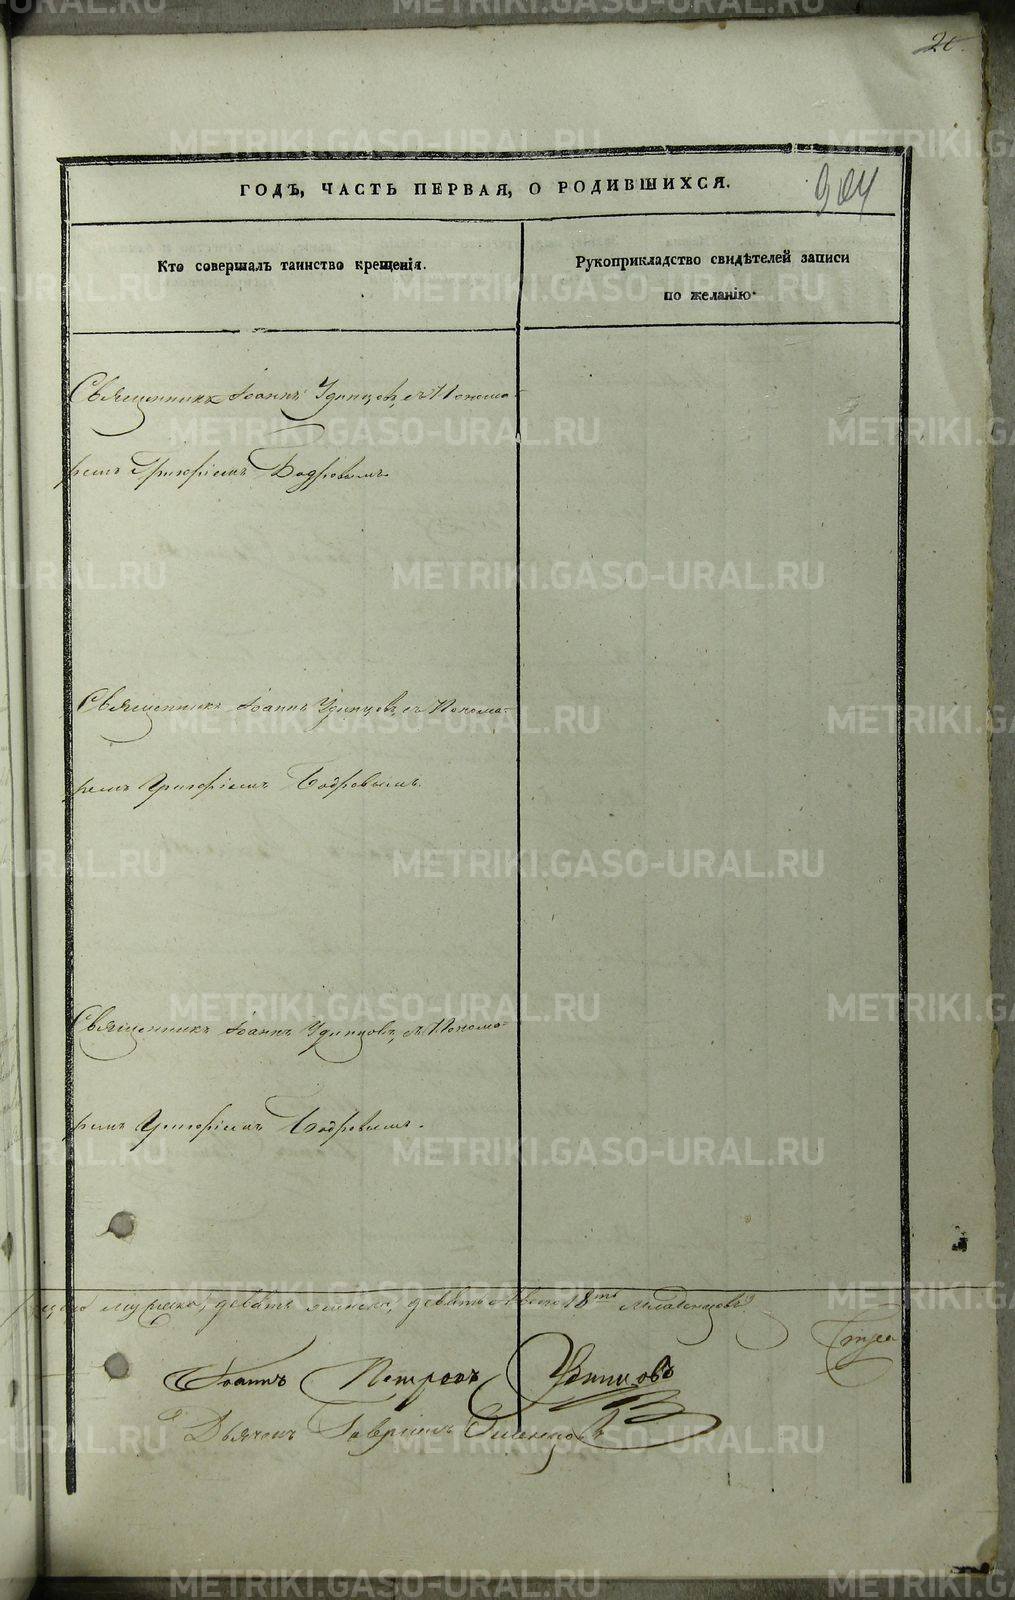 20
904
ГОДЪ, ЧАСТЬ ПЕРВАЯ, О РОДИВШИХСЯ.
Кто совершалъ таинство крещенія.
Рукоприкладство свидѣтелей записи
по желанію.
Священникъ Іоаннъ Удинцовъ, съ Понома-
ремъ Григоріемъ Бодровымъ.
Священникъ Іоаннъ Удинцовъ, съ Понома-
ремъ Григоріемъ Бодровымъ.
Священникъ Іоаннъ Удинцовъ, съ Понома-
ремъ Григоріемъ Бодровымъ.
девять женска, девять Авсего 18ть младенцовъ
Іоаннъ Петровъ Удинцовъ
Дьячекъ Гавріилъ
METRIKI.GASO-URAL.RU